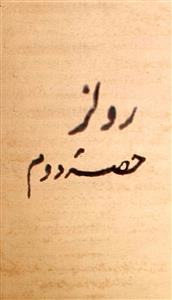 رولز
حصہ دوم